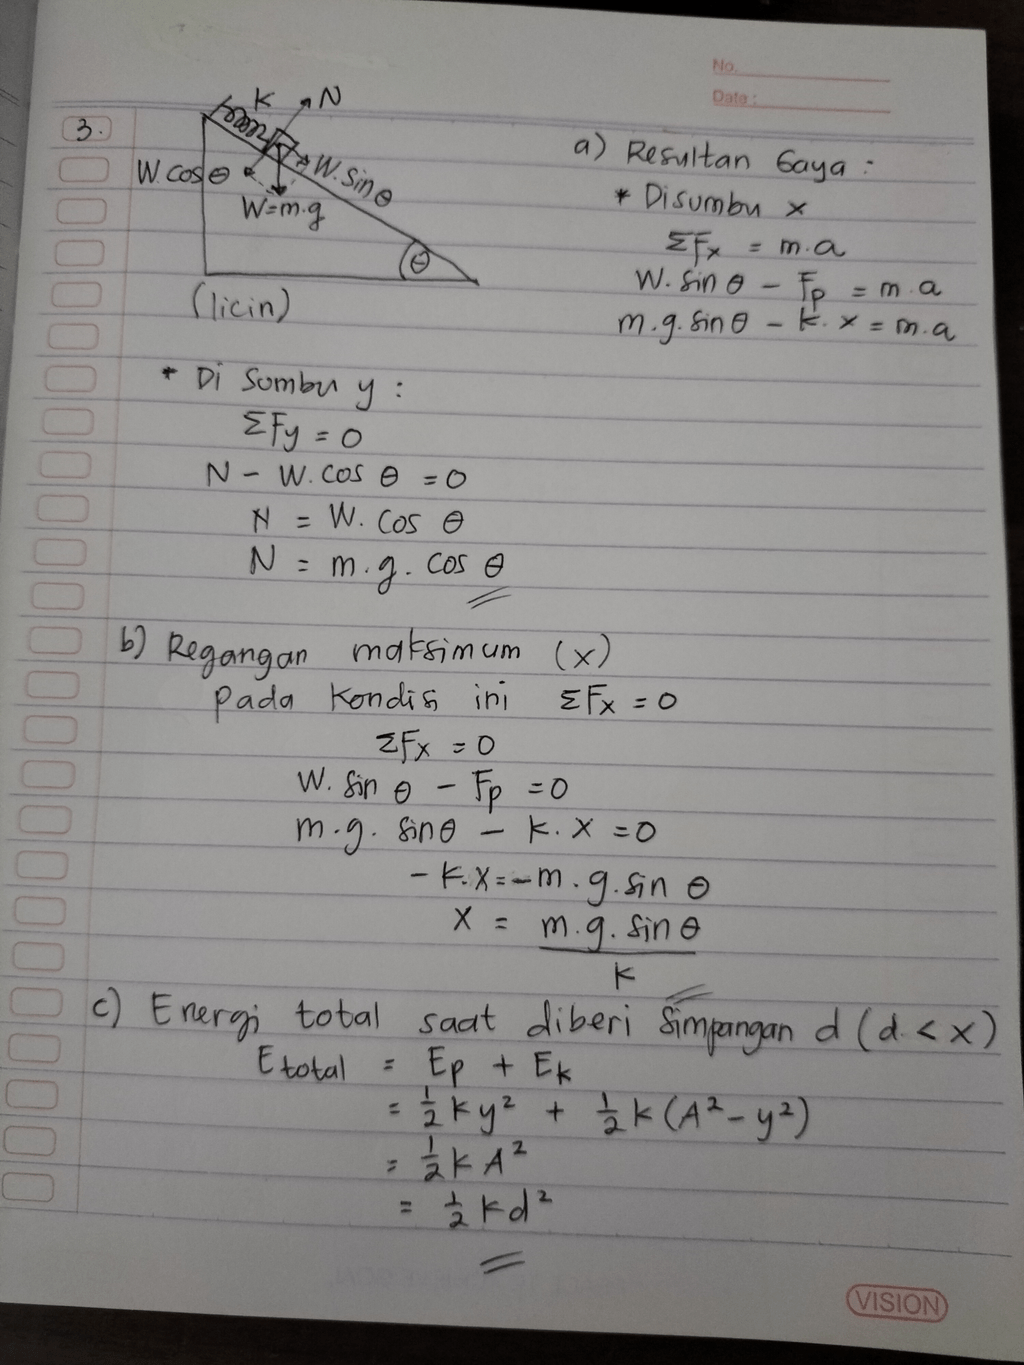 No.
Date :
3.
K
N
W. cos θ
W. sin θ
W=m.g
θ
(licin)
a) Resultan Gaya :
* Disumbu x
ΣFx = m.a
W. sin θ - Fp = m.a
m.g. sin θ - k. x = m.a
* Di sumbu y :
ΣFy = 0
N - W. cos θ = 0
N = W. cos θ
N = m.g. cos θ
b) Regangan maksimum (x)
pada kondisi ini ΣFx = 0
ΣFx = 0
W. sin θ - Fp = 0
m.g. sin θ - k. x = 0
- k. x = - m.g. sin θ
x = m.g. sin θ
k
c) Energi total saat diberi simpangan d (d < x)
E total = Ep + Ek
= 1/2 k y² + 1/2 k (A² - y²)
= 1/2 k A²
= 1/2 k d²
VISION